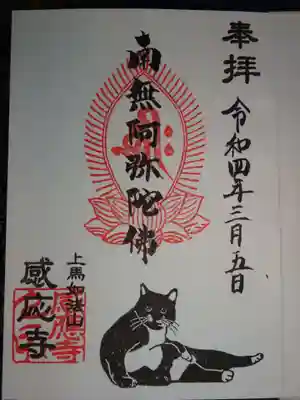 奉拝
令和四年三月五日
南無阿弥陀佛
上馬如法山
感応寺
感応寺